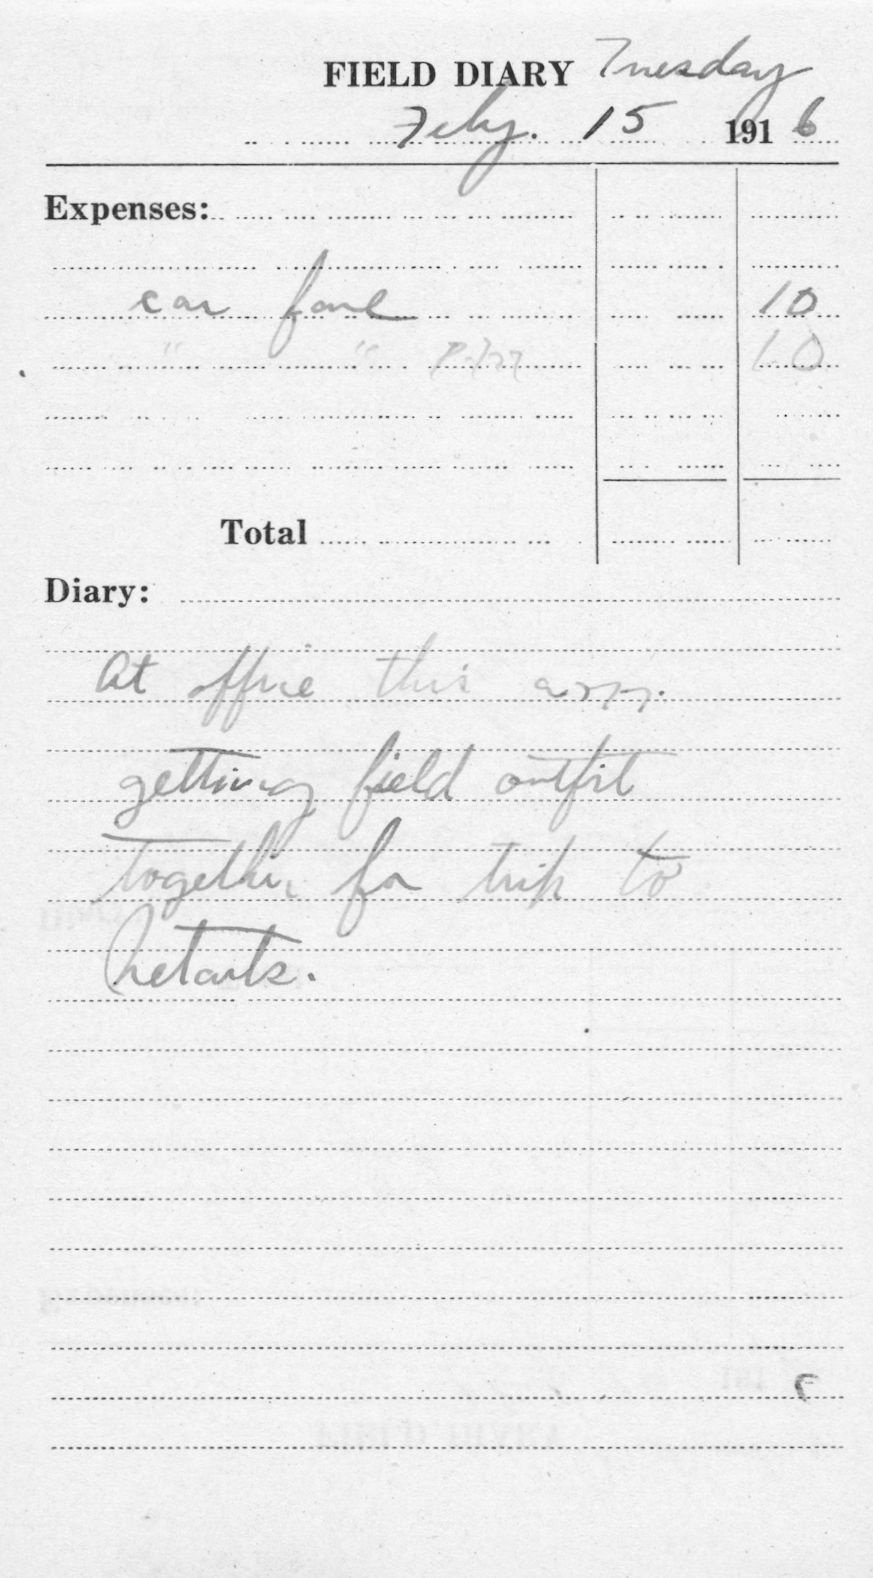 FIELD DIARY Tuesday
Feby. 15 1916
Expenses:
car fare 10
" " P.M. 10
Total
Diary:
At office this a.m.
getting field outfit
together for trip to
Netarts.